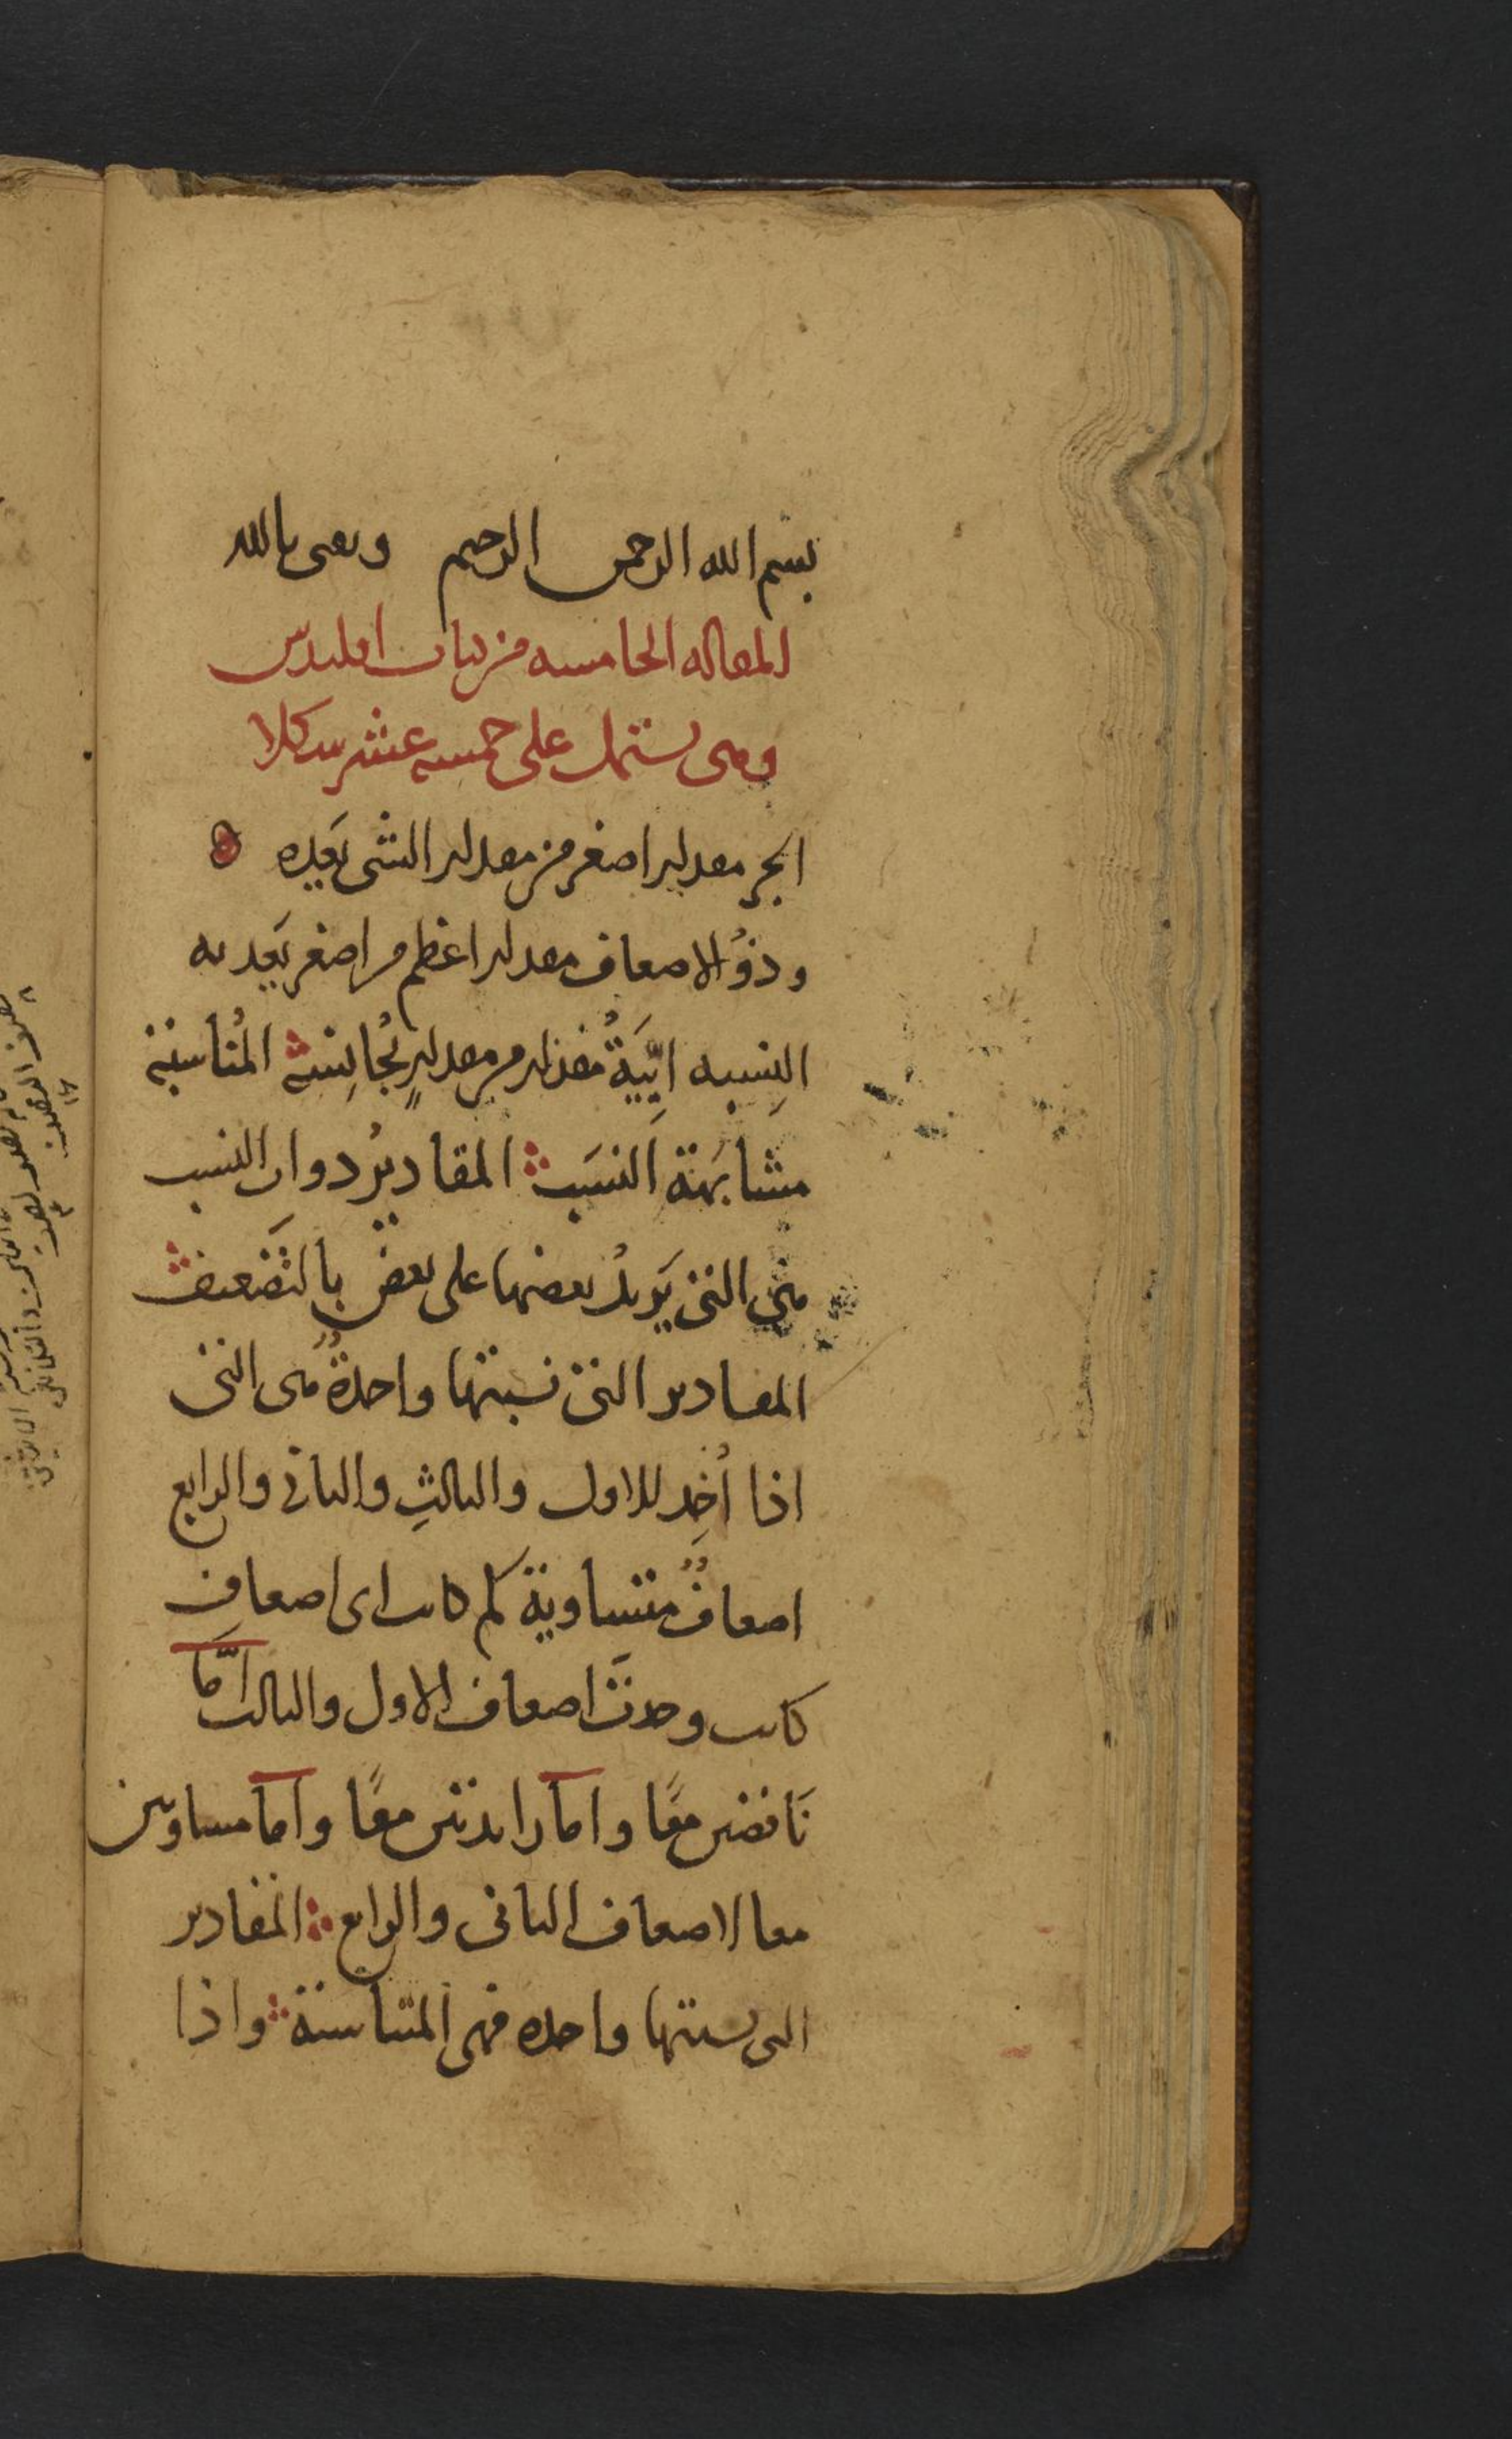 بسم الله الرحمن الرحيم وثقتى بالله
المقاله الخامسه من كتاب اقليدس
وهى تشتمل على خمسه عشر شكلا
الجز مقدار اصغر من مقدار الشى يَعُده
وذوُ الاضعاف مقدار اعظم من اصغر يَعُد به
النِسبه ايِّيَةُ مقدار من مقدارٍ يُجانِسُه المُناسبَة
مشابَهَة النِسَب المقاديرُ ذوات النسب
هى التى يَزيدُ بعضها على بعض بالتضَعيف
المقادير التى نسبتها واحدةٌ هى التى
اذا اُخِذ للاول والثالثِ والثانى والرابع
اضعافٌ متساوية كم كانت اى اضعافٍ
كانت وجدتَ اضعاف الاول والثالث اِمَّا
نَاقصين معًا واما زايدتين معًا واما مساويين
معا لاضعاف الثانى والرابع المقادير
التى نسبتها واحده فهى المتناسبة واذا